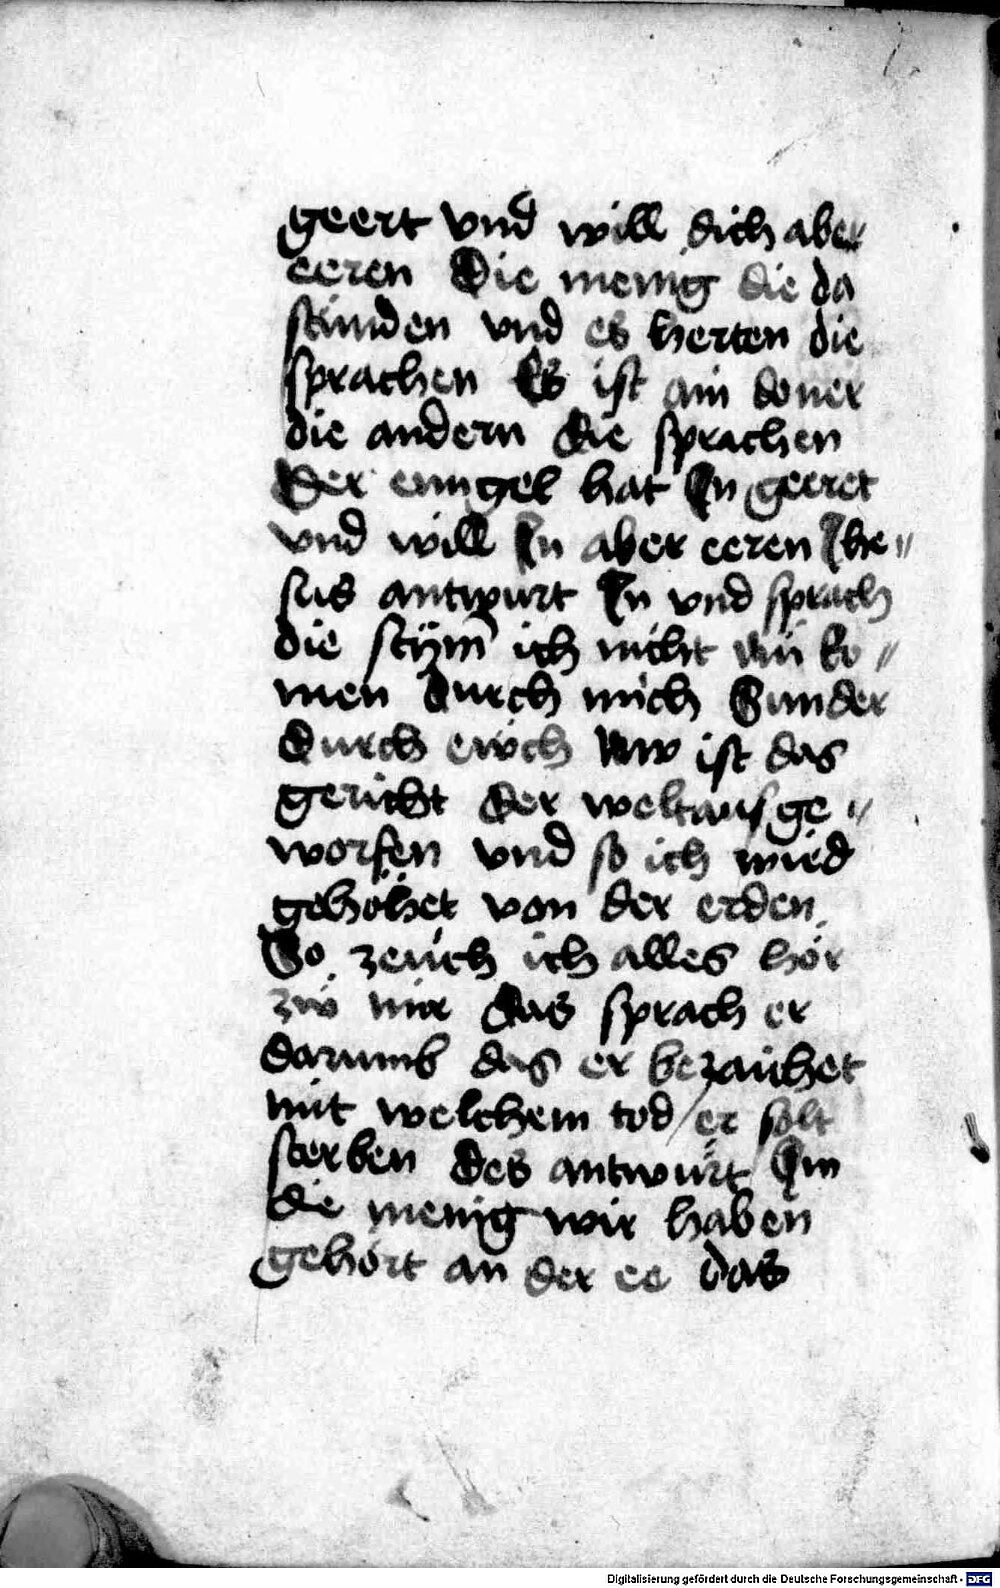 geert vnd will dich aber
eeren Die menig die da
stůnden vnd es herten die
sprachen Es ist ain doner
die andern die sprachen
Der enngel hat In geeret
vnd will In aber eeren Ihe〃
sus antwurt In vnd sprach
die stÿm̄ ich nicht ko〃
men durch mich Sunder
durch eẃch Nw ist das
gericht der welt aus ge〃
worfen vnd so ich wird
gehöhet von der erden
So zeuch ich alles hör
zw mir das sprach er
darumb das er bezaichet
mit welchem tod er solt
sterben des antwurt Im
die menig wir haben
gehört an der ee das
Digitalisierung gefördert durch die Deutsche Forschungsgemeinschaft - DFG